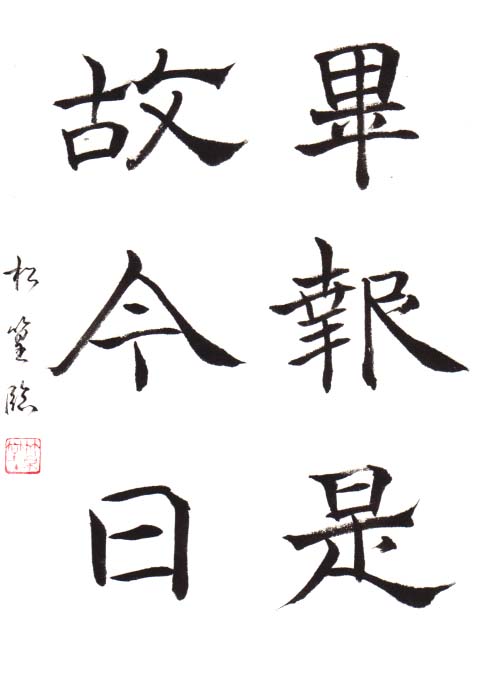 畢報是
故今日
松篁臨